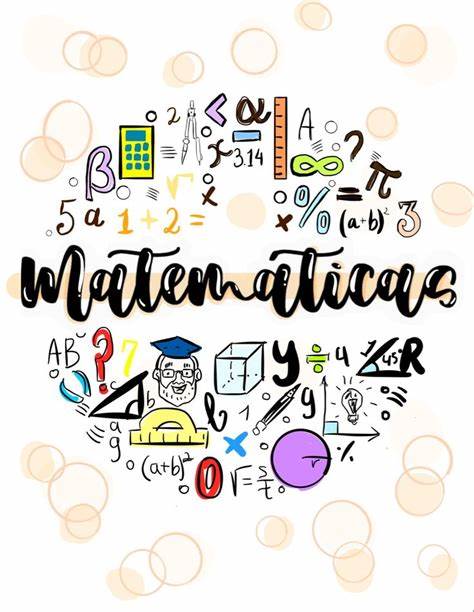 2 < α A ?
β x 3.14 ∞ π
5 a 1+2= x x % = (a+b)² 3
Matematicas
AB ? 7 y ÷ 4 45° R
b l 1 g
a
g (a+b)² x r %
0 V=s/t